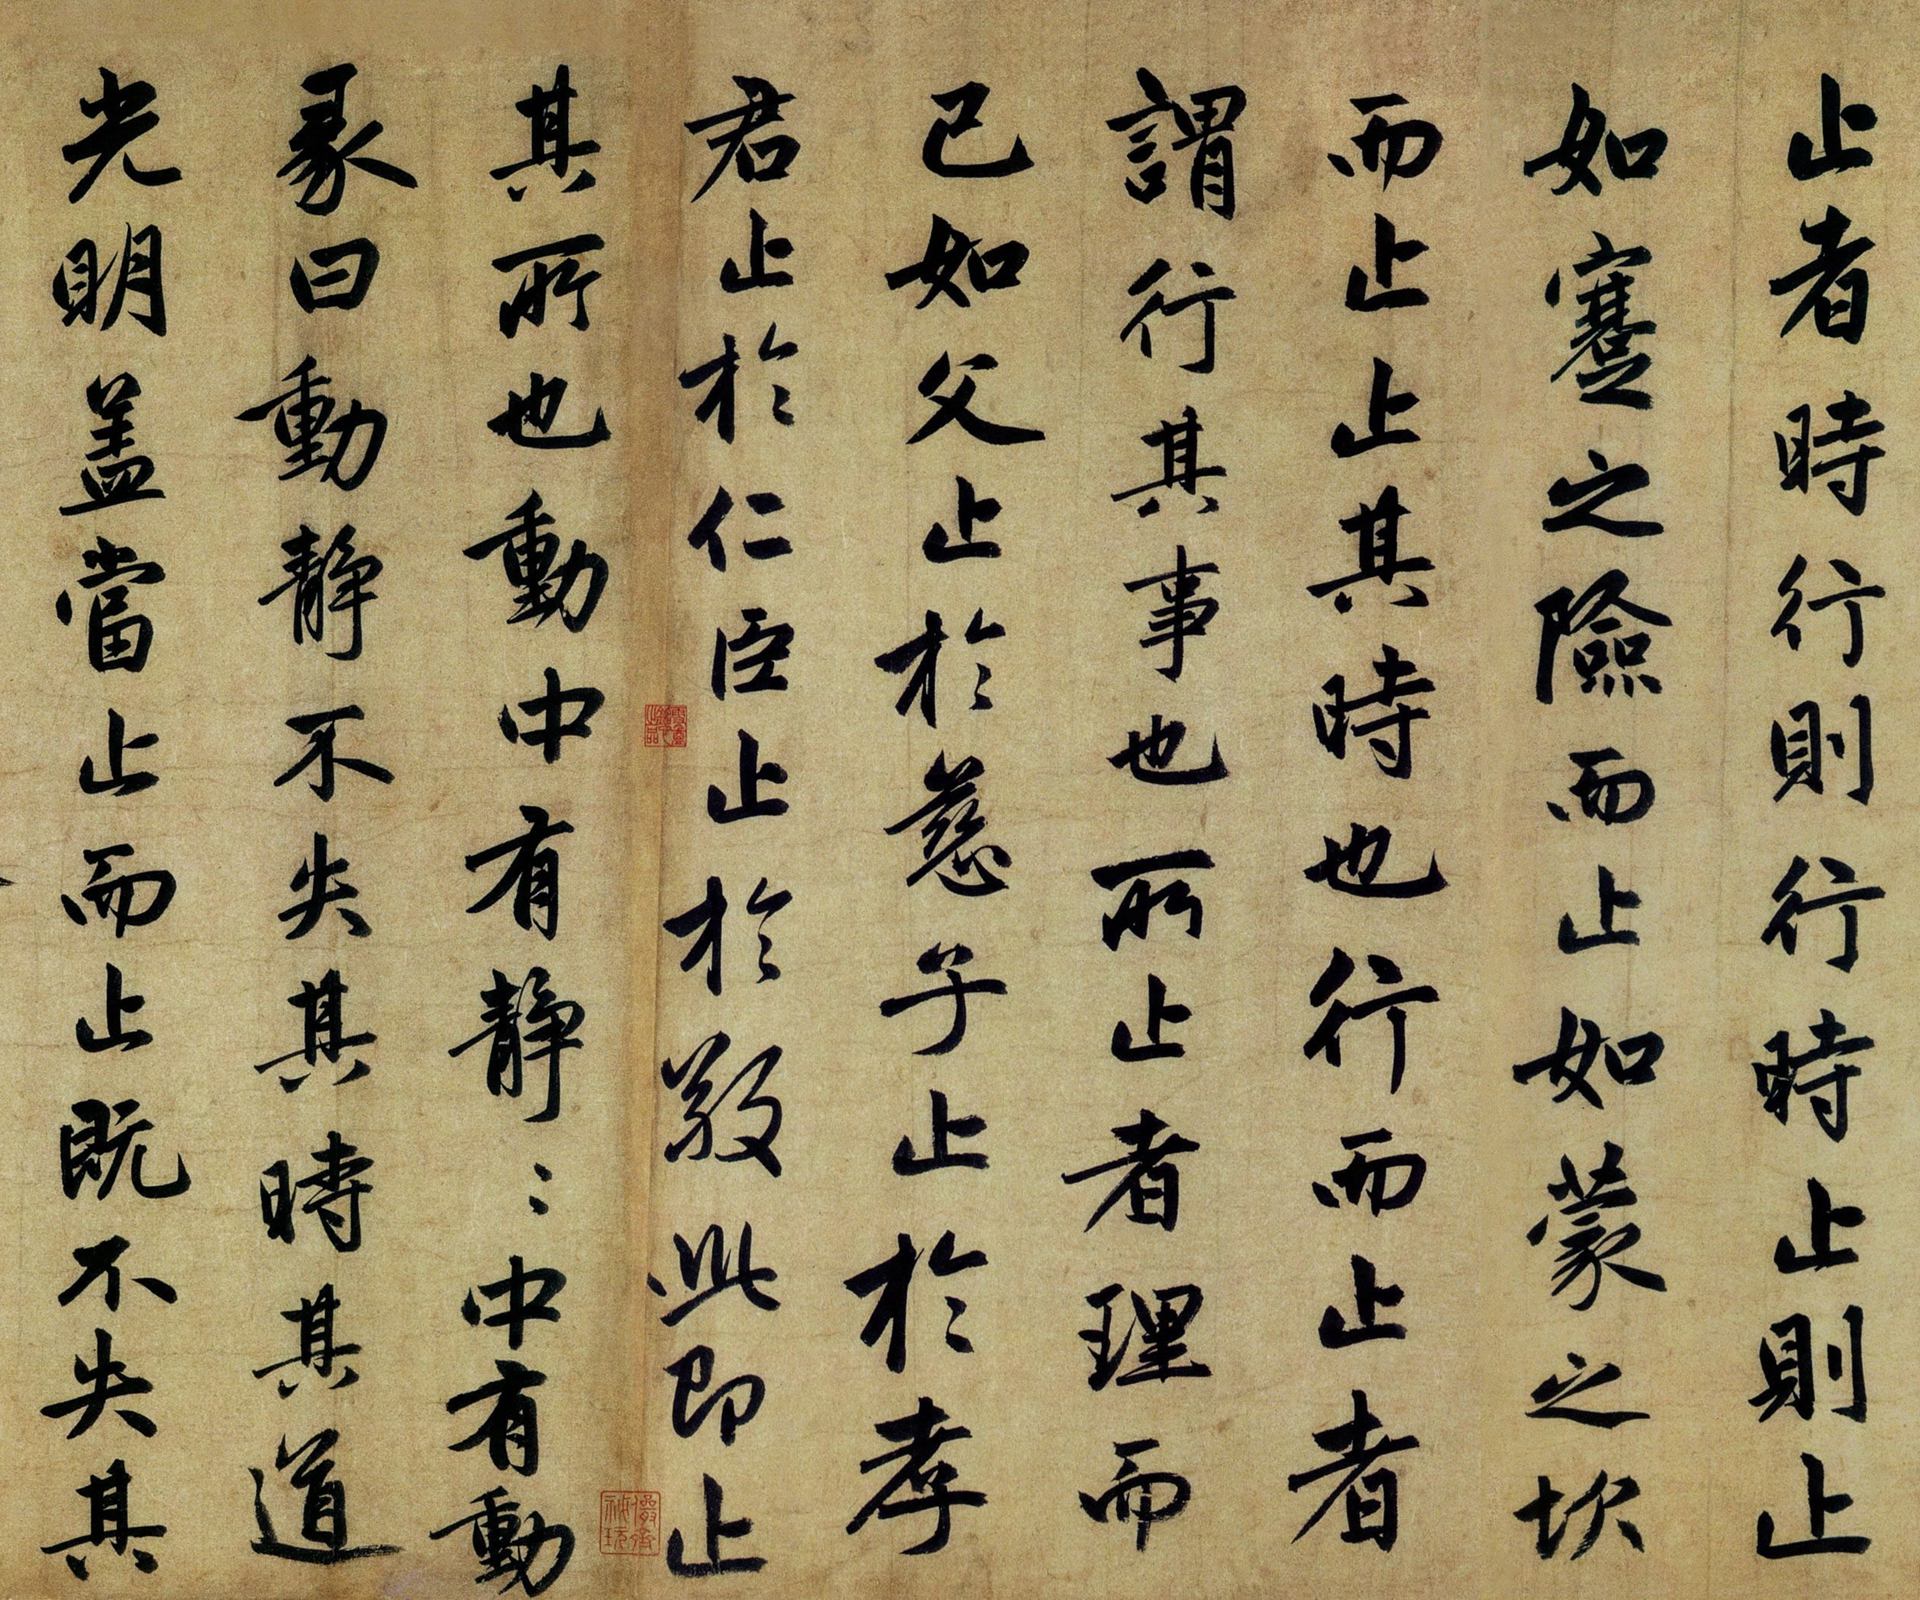 止者時行則行時止則止
如蹇之險而止如蒙之坎
而止止其時也行而止者
謂行其事也所止者理而
已如父止於慈子止於孝
君止於仁臣止於敬此即止
其所也動中有靜〻中有動
彖曰動靜不失其時其道
光明盖當止而止既不失其